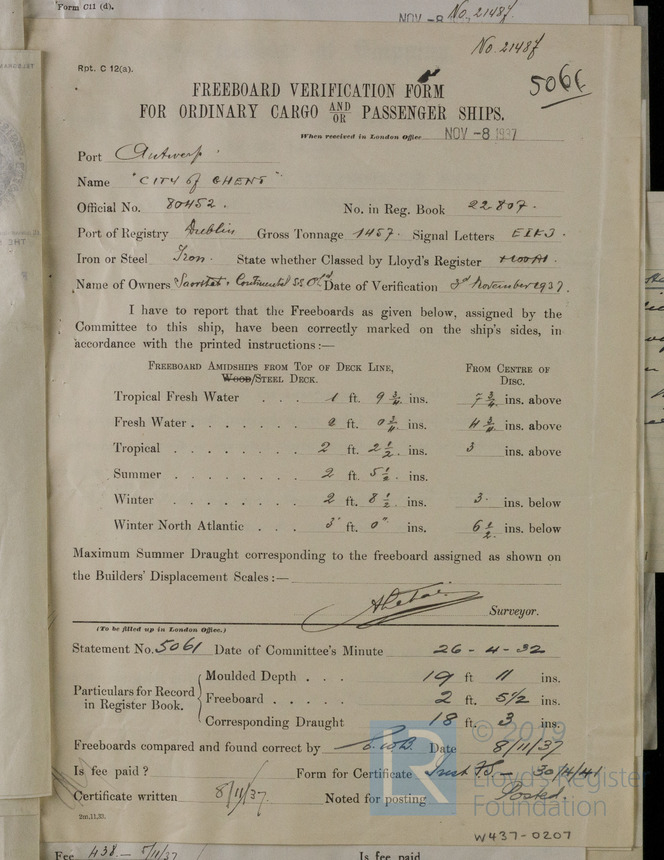 Form C11 (d).
NOV -8 No. 21487
No. 21487
Rpt. C 12(a).
5061
FREEBOARD VERIFICATION FORM
FOR ORDINARY CARGO AND/OR PASSENGER SHIPS.
When received in London Office NOV -8 1937
Port Antwerp
Name "CITY of GHENT"
Official No. 80452. No. in Reg. Book 22807.
Port of Registry Dublin Gross Tonnage 1457. Signal Letters EIKJ.
Iron or Steel Iron. State whether Classed by Lloyd's Register
Name of Owners Continental SS Co Ld Date of Verification 3rd November 1937.
I have to report that the Freeboards as given below, assigned by the
Committee to this ship, have been correctly marked on the ship's sides, in
accordance with the printed instructions:—
FREEBOARD AMIDSHIPS FROM TOP OF DECK LINE, FROM CENTRE OF
WOOD/STEEL DECK. DISC.
Tropical Fresh Water . . . 1 ft. 9 3/4 ins. 7 3/4 ins. above
Fresh Water . . . . . . . 2 ft. 0 3/4 ins. 4 3/4 ins. above
Tropical . . . . . . . . 2 ft. 2 1/2 ins. 3 ins. above
Summer . . . . . . . . 2 ft. 5 1/2 ins.
Winter . . . . . . . . 2 ft. 8 1/2 ins. 3 ins. below
Winter North Atlantic . . . 3 ft. 0" ins. 6 1/2 ins. below
Maximum Summer Draught corresponding to the freeboard assigned as shown on
the Builders' Displacement Scales:—
Surveyor.
(To be filled up in London Office.)
Statement No. 5061 Date of Committee's Minute 26-4-32
Particulars for Record in Register Book.
Moulded Depth . . . 19 ft 11 ins.
Freeboard . . . . . 2 ft. 5 1/2 ins.
Corresponding Draught 18 ft. 3 ins.
Freeboards compared and found correct by Date 8/11/37
Is fee paid? Form for Certificate 30/4/41
Certificate written 8/11/37. Noted for posting Posted.
2m.11,33.
LR © 2019
Lloyd's Register
Foundation
W437-0207
Fee 438 — 5/11/37 Is fee paid